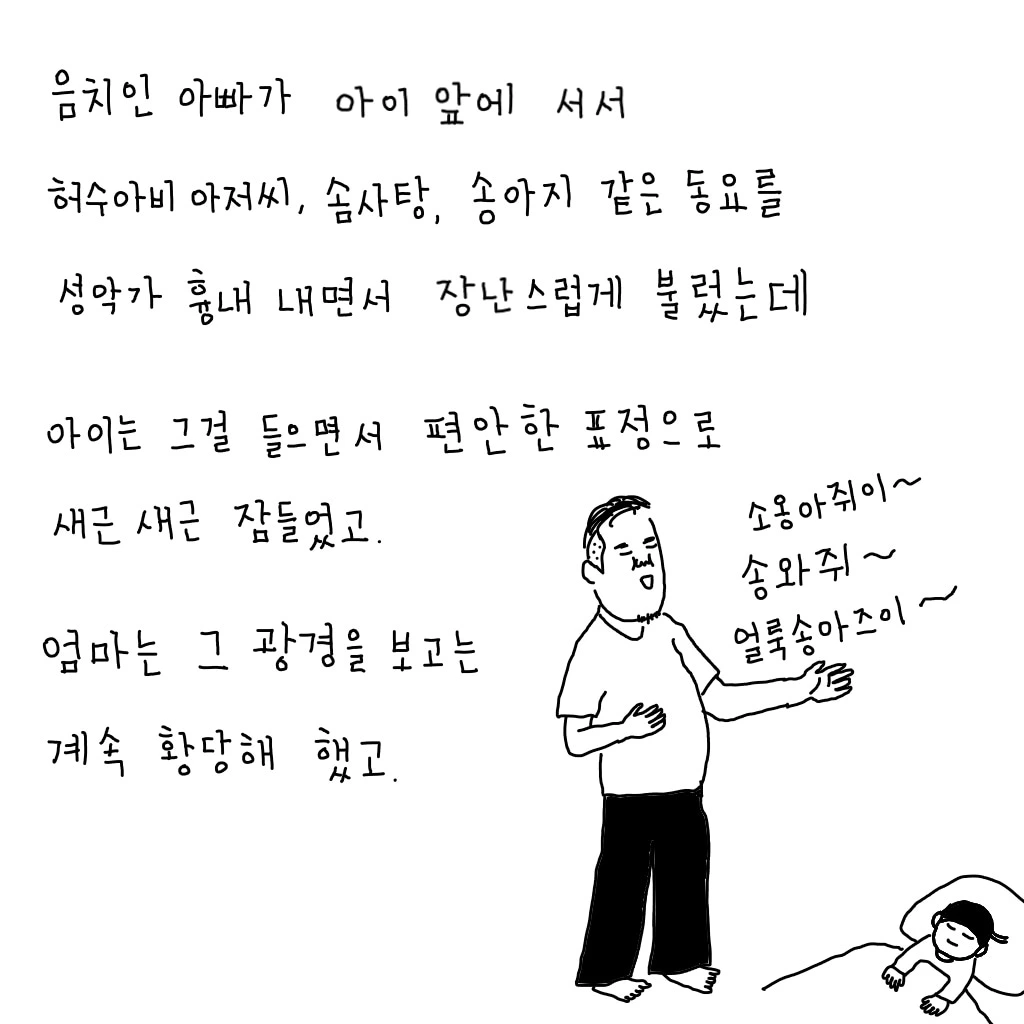 음치인 아빠가 아이 앞에 서서
허수아비 아저씨, 솜사탕, 송아지 같은 동요를
성악가 흉내 내면서 장난스럽게 불렀는데
아이는 그걸 들으면서 편안한 표정으로
새근 새근 잠들었고.
엄마는 그 광경을 보고는
계속 황당해 했고.
소옹아쥐이~
송와쥐~
얼룩송아즈이~